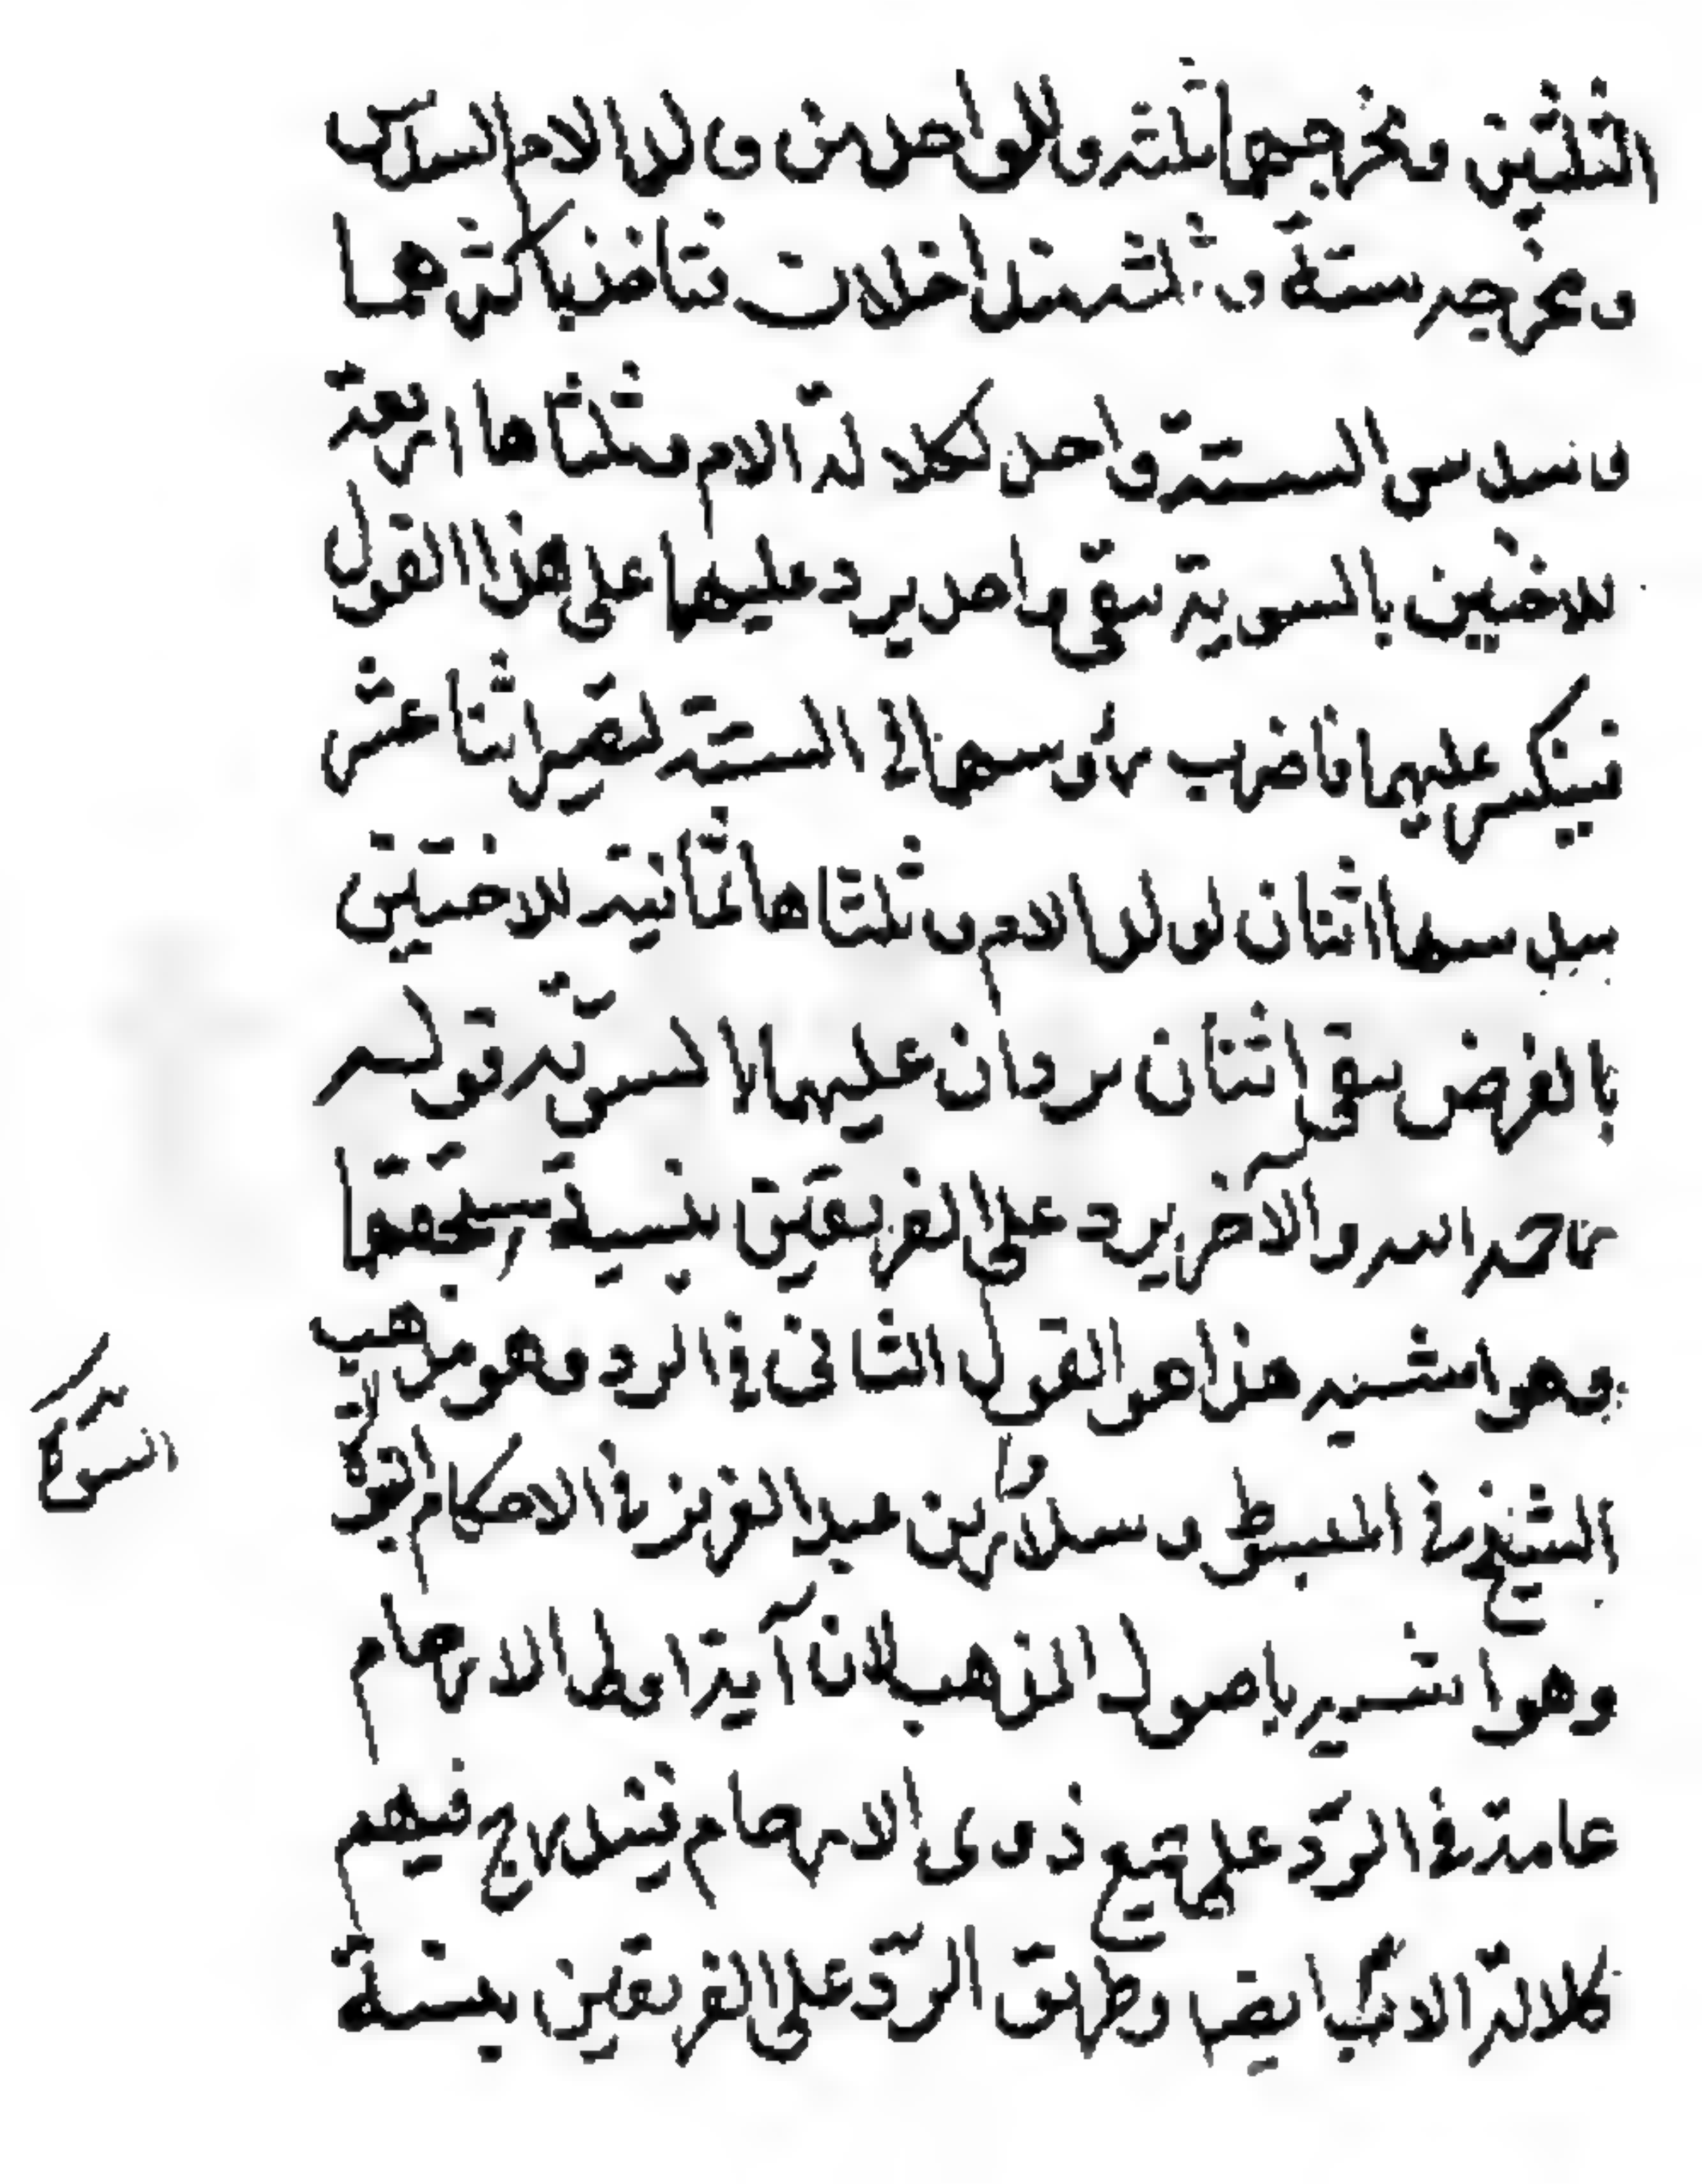 الثلثين ومخرجها ثلثه وللواحد من ولد الام السدس
ومخرجه ستة و تداخلات فتاخذ باكثرهما
وسدس الستة واحد لكلالة الام وثلثاها اربعة
للاختين بالسوية يبقى واحد يرد عليهما على هذا القول
فينكسر عليهما فاضرب رؤسهما في الستة تصير اثنا عشر
سدسها اثنان لولد الام وثلثاها ثمانية للاختين
بالفرض يبقى اثنان يردان عليهما بالسوية قوله
رحمه الله والآخر يرد على الفريقين بنسبة مستحقهما
وهو اشبه هذا هو القول الثاني في الرد وهو مذهب
الشيخ في المبسوط وسلار بن عبد العزيز في الاحكام النبوية
وهو اشبه باصول المذهب لان آية اولوا الارحام
عامة في الرد على جميع ذوي الارحام فيندرج فيهم
كلالة الاب ايضا وطريق الرد على الفريقين بنسبة